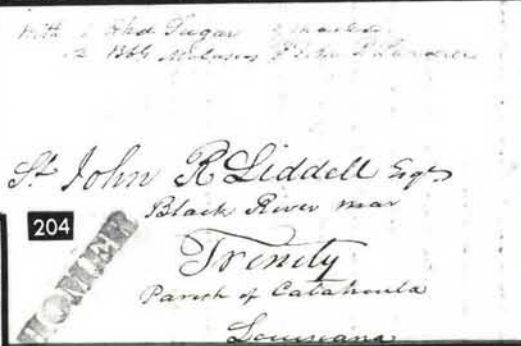 With 1 Hhd Sugar
2 Bbls Molasses
St John R Liddell Esqr
Black River near
204
Trinity
HOMER
Parish of Catahoula
Louisiana